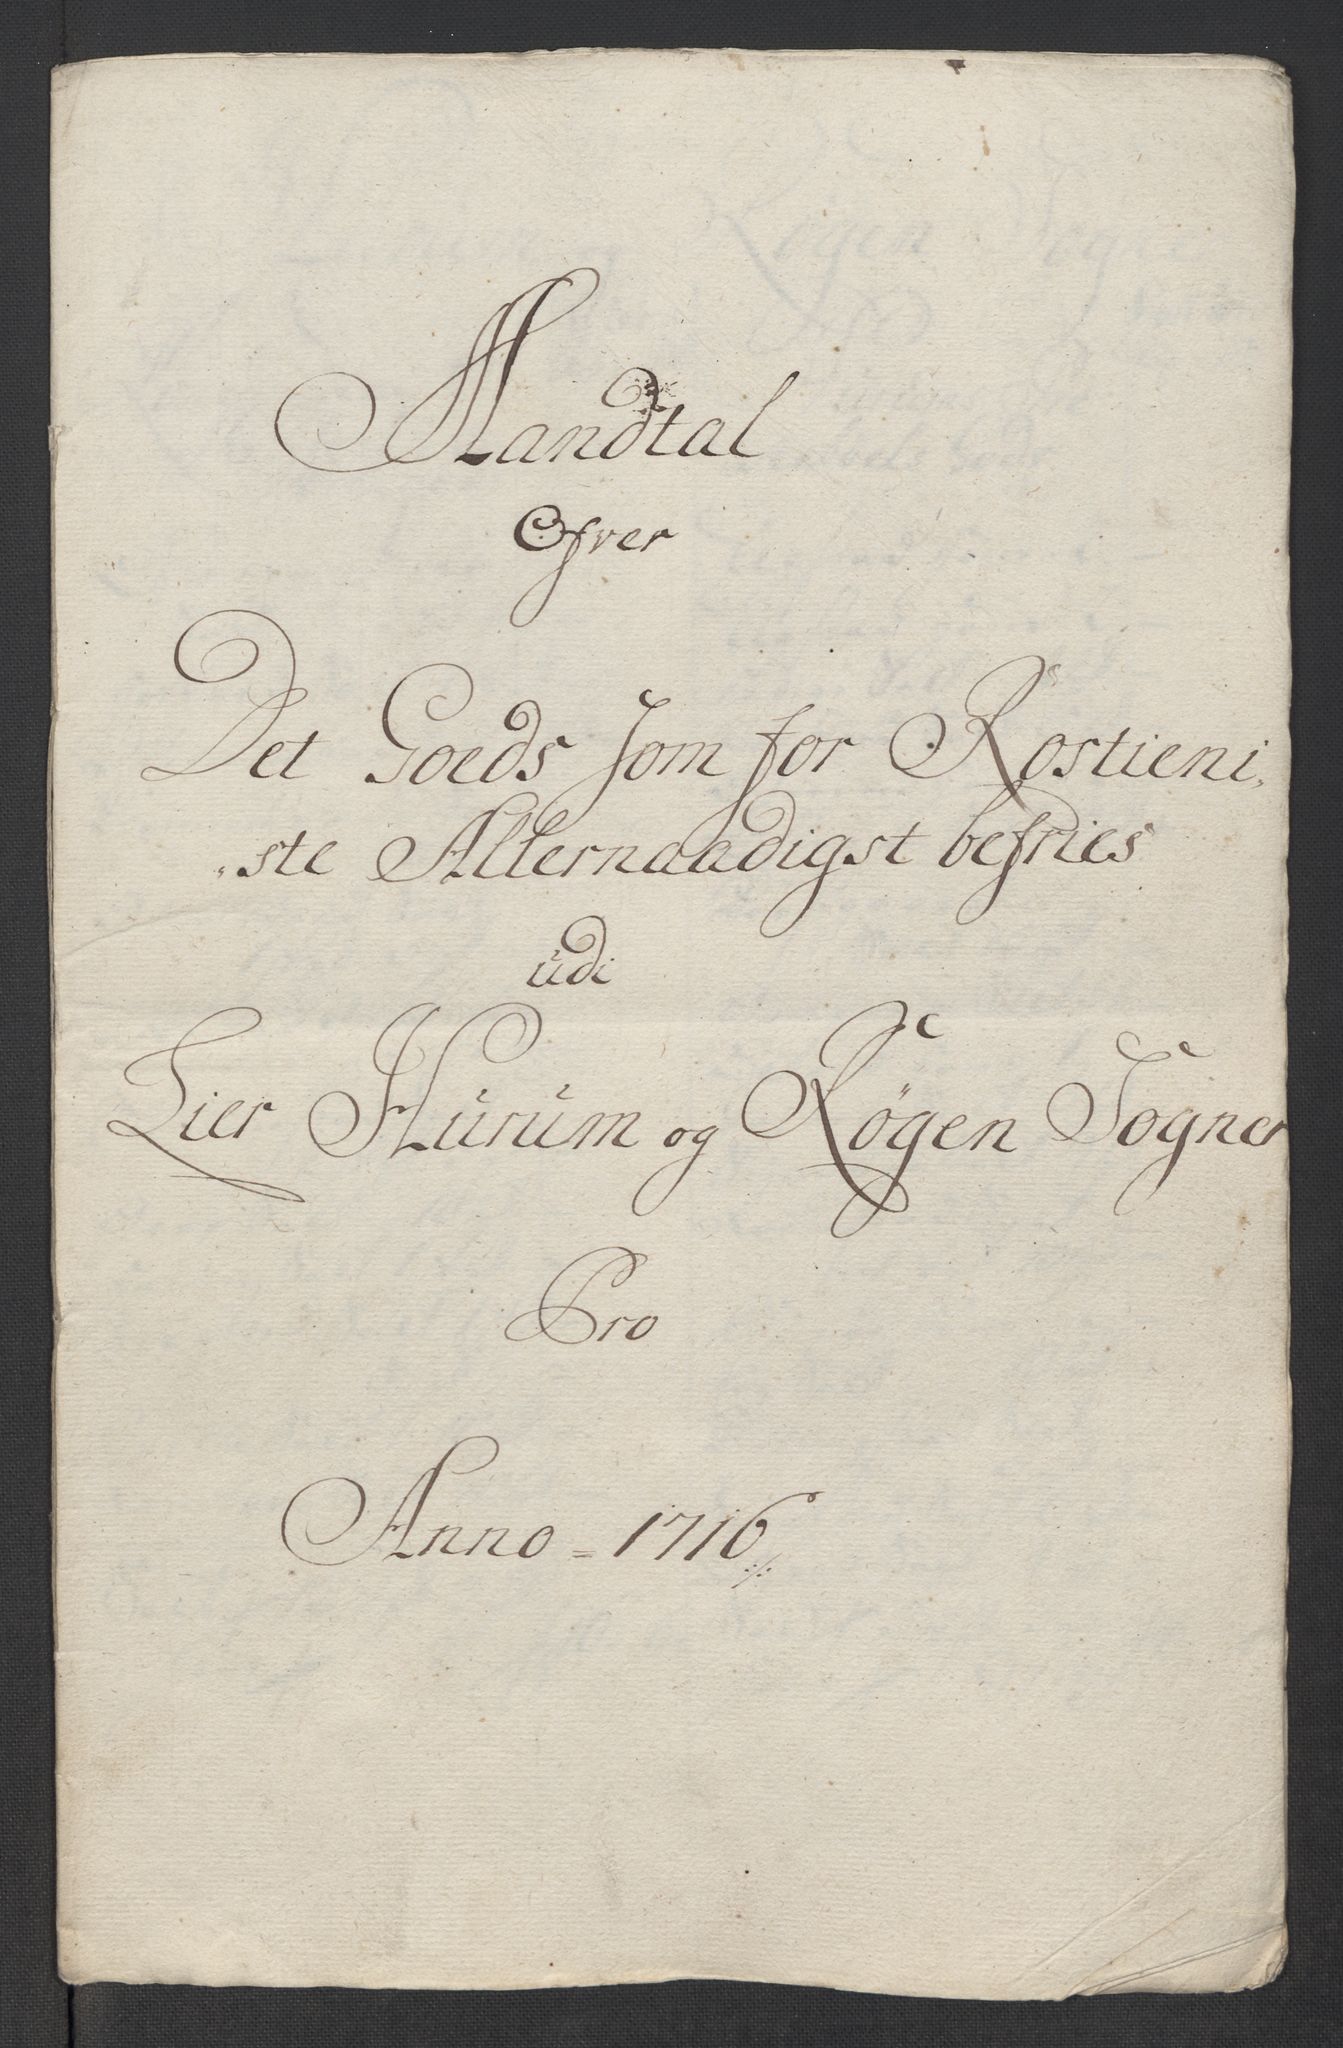 Mandtal
Ofver
Det Goeds som for Rostieni„
„ste Allernaadigst befries
udi
Lier Hurum og Røgen Sogner
Pro
Anno = 1716 ./.